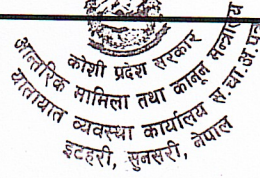 कोशी प्रदेश सरकार
आन्तरिक मामिला तथा कानून मन्त्रालय
यातायात व्यवस्था कार्यालय स.चा.अ.प
इटहरी, सुनसरी, नेपाल